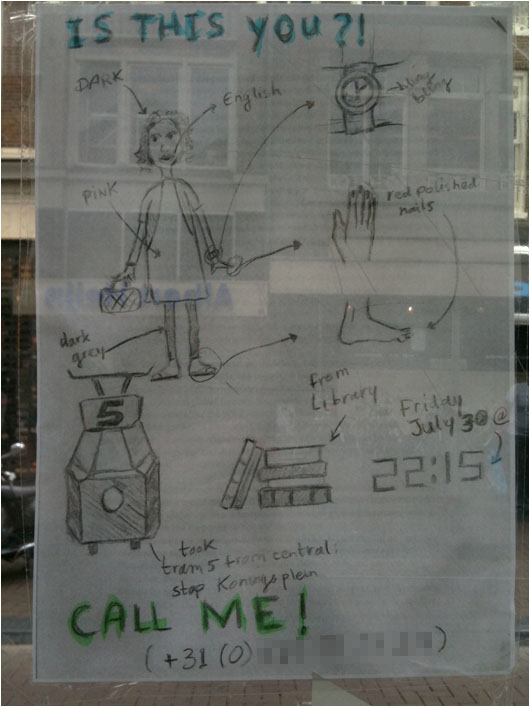 IS THIS YOU?!
DARK
English
bling
bling
PINK
red polished
nails
dark
grey
from
Library
5
Friday
July 30 @
22:15
took
tram 5 from central;
stop Konings plein
CALL ME!
(+31 (0) )